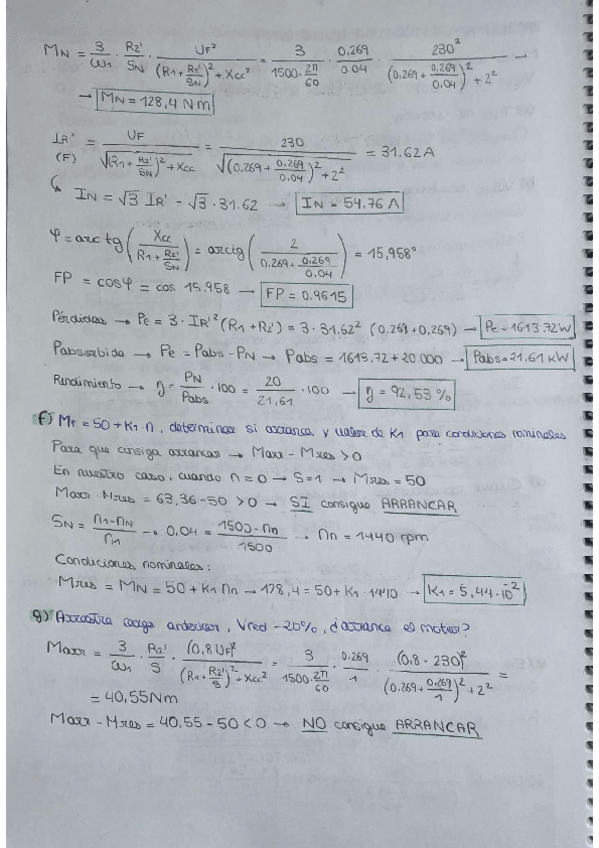 M_N = 3/ω1 · R2'/S_N · U_F²/((R1+R2'/S_N)² + Xcc²) = 3/(1500·2π/60) · 0.269/0.04 · 230²/((0.269+0.269/0.04)² + 2²)
→ M_N = 128,4 Nm
I_R' (F) = U_F/√((R1+R2'/S_N)² + Xcc) = 230/√((0.269+0.269/0.04)² + 2²) = 31.62 A
↳ I_N = √3 I_R' = √3 · 31.62 → I_N = 54.76 A
φ = arctg(Xcc/(R1+R2'/S_N)) = arctg(2/(0.269+0.269/0.04)) = 15,958°
FP = cosφ = cos 15,958 → FP = 0.9615
Pérdidas → Pe = 3 · I_R'² (R1+R2') = 3 · 31.62² (0.269+0,269) → Pe = 1613.72 W
Pabsorbida → Pe = Pabs - P_N → Pabs = 1613,72 + 20 000 → Pabs = 21.61 kW
Rendimiento → η = P_N/Pabs · 100 = 20/21,61 · 100 → η = 92,53 %
f) Mr = 50 + K1 · n, determinar si arranca, y valor de K1 para condiciones nominales
Para que consiga arrancar → Marr - Mres > 0
En nuestro caso, cuando n = 0 → S = 1 → Mres = 50
Marr - Mres = 63,36 - 50 > 0 → SI consigue ARRANCAR
S_N = (n1 - n_N)/n1 → 0,04 = (1500 - nn)/1500 → nn = 1440 rpm
Condiciones nominales:
Mres = M_N = 50 + K1 nn → 128,4 = 50 + K1 · 1440 → K1 = 5,44·10⁻²
g) Arrastra carga anterior, Vred -20%, ¿arranca el motor?
Marr = 3/ω1 · R2'/S · (0,8 U_F)²/((R1+R2'/S)² + Xcc²) = 3/(1500·2π/60) · 0.269/1 · (0.8 · 230)²/((0.269+0.269/1)² + 2²) =
= 40,55 Nm
Marr - Mres = 40.55 - 50 < 0 → NO consigue ARRANCAR